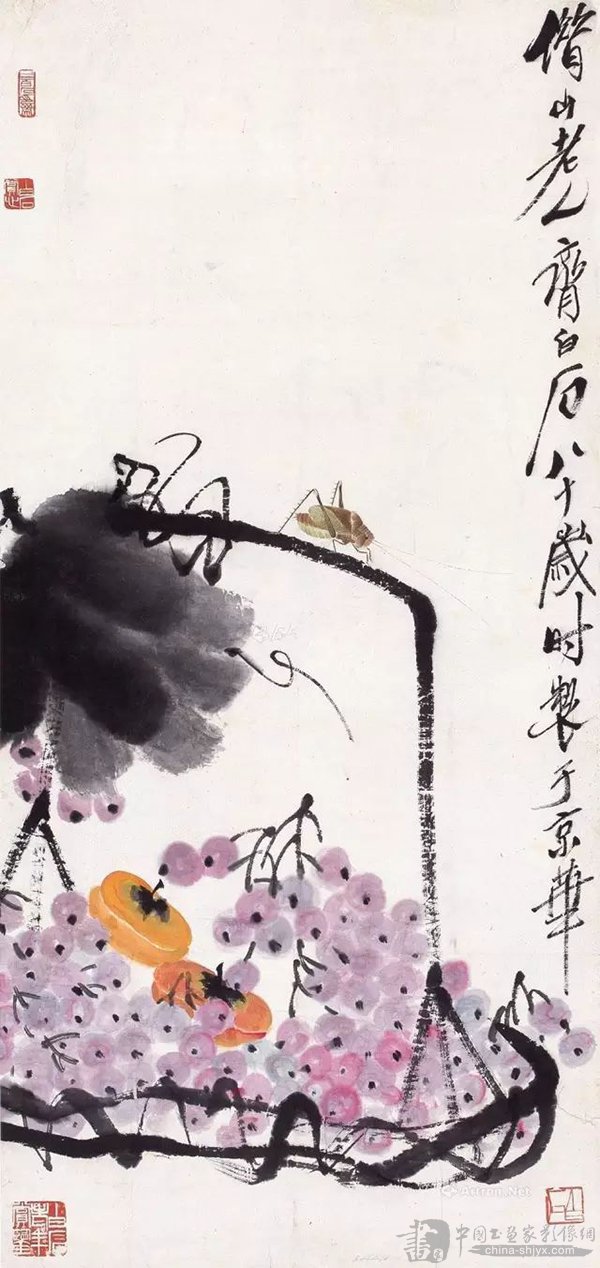 借山老人齊白石八十歲时製于京華
Artron.Net
中国书画家影像網
china-shjyx.com